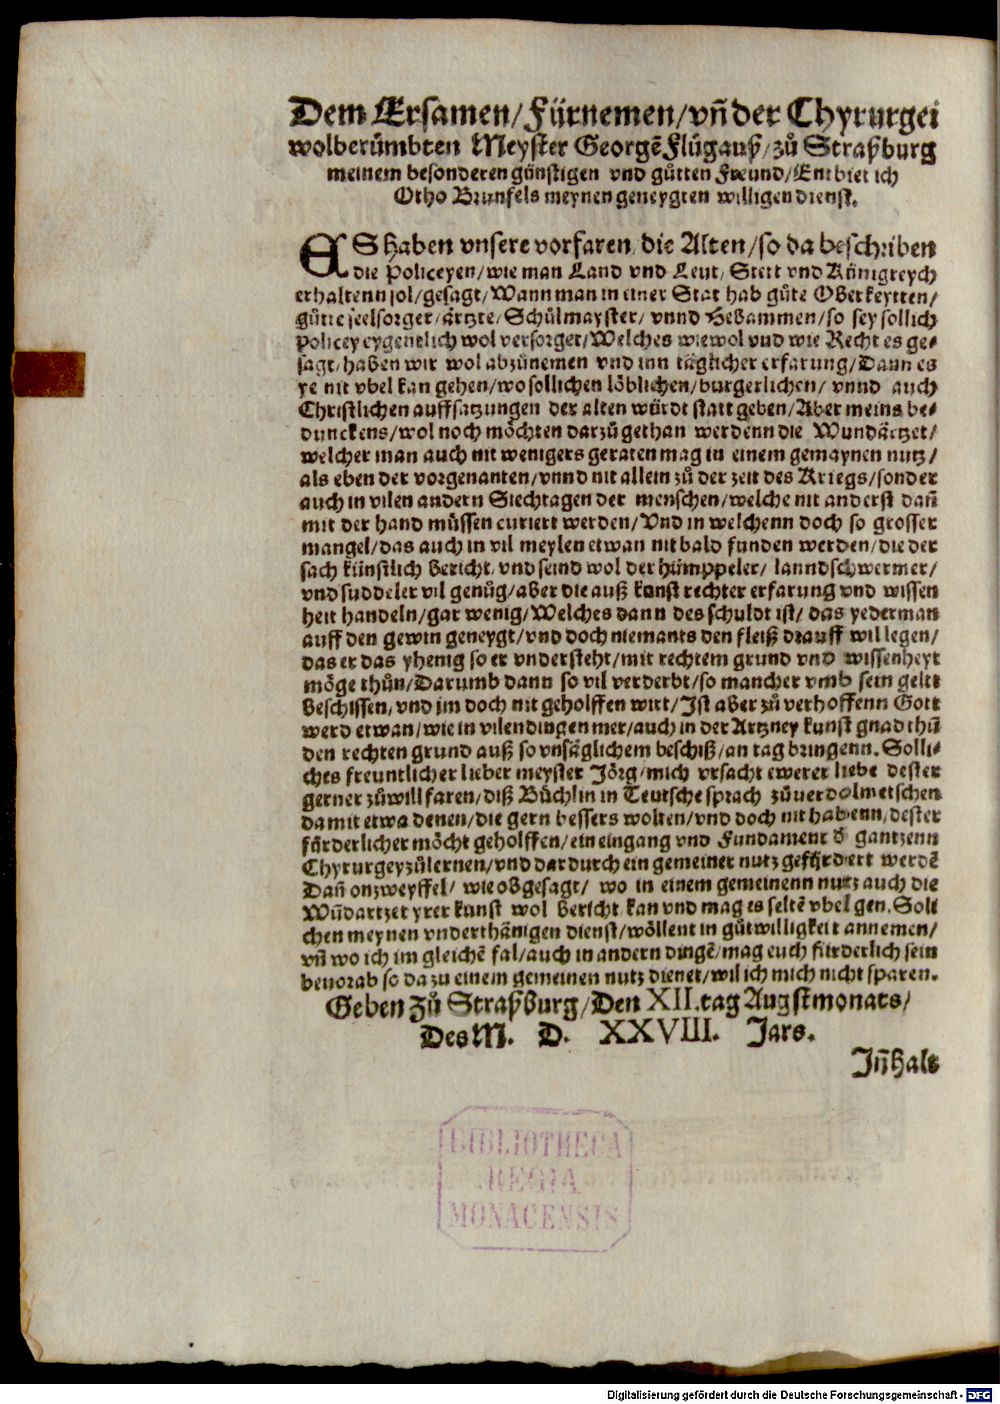 Dem Ersamen/ Fürnemen/ vñ der Chyrurgei
wolberümbten Meyster Georgẽ Flügauß/ zů Straßburg
meinem besonderen günstigen vnd gůtten Freund/ Entbiet ich
Otho Brunfels meynen geneygten willigen dienst.
ES haben vnsere vorfaren die Alten/ so da beschriben
die Policeyen/ wie man Land vnd Leut/ Stett vnd Künigreych
erhaltenn sol/ gesagt/ Wann man in einer Stat hab gůte Oberkeytten/
gůtte seelsorger/ ärtzte/ Schůlmayster/ vnnd Hebammen/ so sey sollich
policey eygentlich wol versorget/ Welches wiewol vnd wie Recht es ge⸗
sagt/ haben wir wol abzůnemen vnd inn täglicher erfarung/ Dann es
ye nit vbel kan gehen/ wo sollichen löblichen/ burgerlichen/ vnnd auch
Christlichen auffsatzungen der alten würdt statt geben/ Aber meins be⸗
dunckens/ wol noch möchten darzů gethan werdenn die Wundärtzet/
welcher man auch nit wenigers geraten mag in einem gemaynen nutz/
als eben der vorgenanten/ vnnd nit allein zů der zeit des Kriegs/ sonder
auch in vilen andern Siechtagen der menschen/ welche nit anderst dañ
mit der hand müssen curiert werden/ Vnd in welchenn doch so grosser
mangel/ das auch in vil meylen etwan nit bald funden werden/ die der
sach künstlich bericht, vnd seind wol der hümppeler/ lanndschwermer/
vnd suddeler vil genůg/ aber die auß kunst rechter erfarung vnd wissen
heit handeln/ gar wenig/ Welches dann des schuldt ist/ das yederman
auff den gewin geneygt/ vnd doch niemants den fleiß drauff wil legen/
das er das yhenig so er vndersteht/ mit rechtem grund vnd wissenheyt
möge thůn/ Darumb dann so vil verderbt/ so mancher vmb sein gelt
beschissen, vnd im doch nit geholffen wirt/ Ist aber zů verhoffenn Gott
werd etwan/ wie in vilen dingen mer/ auch in der Artzney kunst gnad thů
den rechten grund auß so vnsäglichem beschiß/ an tag bringenn. Solli⸗
ches freuntlicher lieber meyster Jörg/ mich vrsacht ewerer liebe dester
gerner zůwillfaren/ diß Büchlin in Teutsche sprach zůuerdolmetschen
damit etwa denen/ die gern bessers wolten/ vnd doch nit habenn, dester
fürderlicher möcht geholffen/ ein eingang vnd Fundament ď gantzenn
Chyrurgey zůlernen/ vnd dardurch ein gemeiner nutz gefürdert werdẽ
Dañ onzweyffel/ wie obgesagt/ wo in einem gemeinenn nutz auch die
Wũdartzet yrer kunst wol bericht, kan vnd mag es seltẽ vbel gen. Soli
chen meynen vnderthänigen dienst/ wöllent in gůtwilligkeit annemen/
vñ wo ich im gleichẽ fal/ auch in andern dingẽ/ mag euch fürderlich sein
beuorab so da zu einem gemeinen nutz dienet/ wil ich mich nicht sparen.
Geben Zů Straßburg/ Den XII. tag Augstmonats/
Des M. D. XXVIII. Jars.
Iñhalt
BIBLIOTHECA
REGIA
MONACENSIS
Digitalisierung gefördert durch die Deutsche Forschungsgemeinschaft - DFG